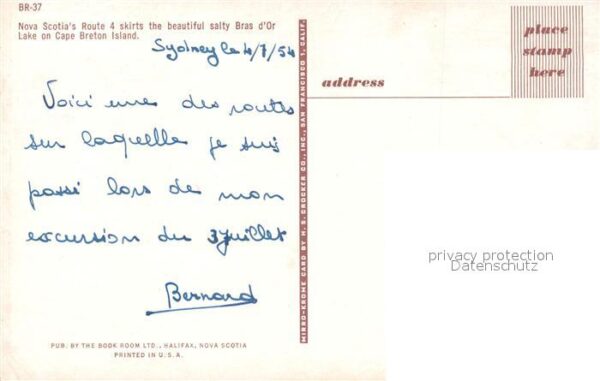 BR-37
Nova Scotia's Route 4 skirts the beautiful salty Bras d'Or
Lake on Cape Breton Island.
Sydney le 4/7/54
Voici une des routes
sur laquelle je suis
passé lors de mon
excursion du 3 juillet
Bernard
PUB. BY THE BOOK ROOM LTD., HALIFAX, NOVA SCOTIA
PRINTED IN U.S.A.
MIRRO-KROME CARD BY H. S. CROCKER CO., INC., SAN FRANCISCO 1, CALIF.
address
place
stamp
here
privacy protection
Datenschutz